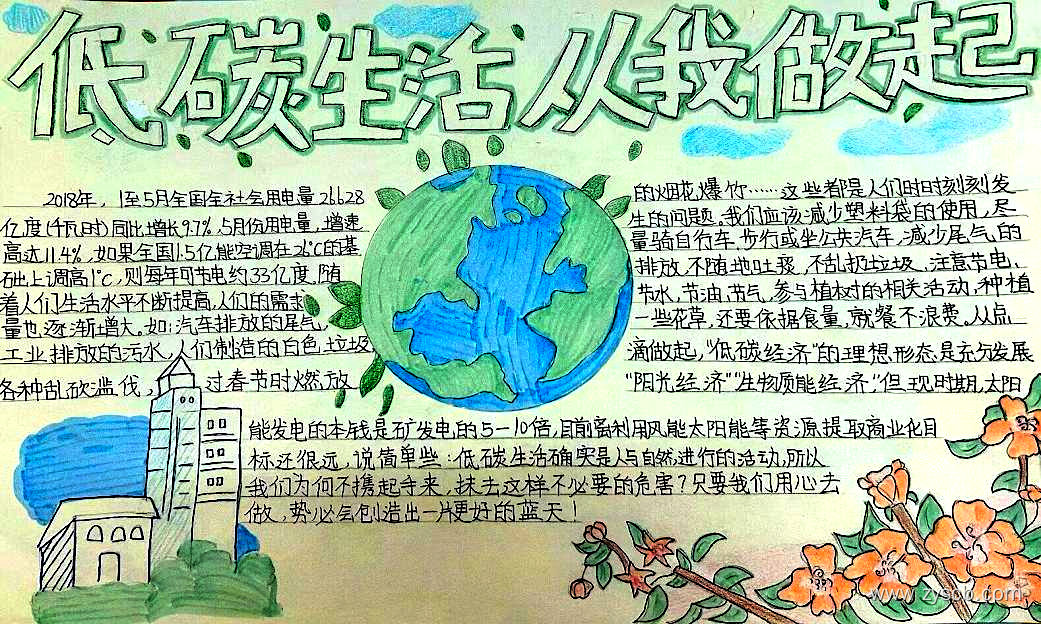 低碳生活从我做起
2018年，1至5月全国全社会用电量26628
亿度(千瓦时)同比增长9.7%，5月份用电量，增速
高达11.4%，如果全国1.5亿能空调在26℃的基
础上调高1℃，则每年可节电约33亿度。随
着人们生活水平不断提高，人们的需求
量也逐渐增大。如：汽车排放的尾气，
工业排放的污水，人们制造的白色垃圾
各种乱砍滥伐，过春节时燃放
的烟花爆竹……这些都是人们时时刻刻发
生的问题。我们应该减少塑料袋的使用，尽
量骑自行车，步行或坐公共汽车，减少尾气的
排放，不随地吐痰，不乱扔垃圾，注意节电、
节水，节油，节气，参与植树的相关活动，种植
一些花草，还要依据食量，就餐不浪费。从点
滴做起，“低碳经济”的理想形态是充分发展
“阳光经济”“生物质能经济，”但现时期，太阳
能发电的本钱是矿发电的5—10倍，目前离利用风能太阳能等资源提取商业化目
标还很远，说简单些：低碳生活确实是人与自然进行的活动，所以
我们为何不携起手来，抹去这样不必要的危害？只要我们用心去
做，势必会创造出一片更好的蓝天！
www.zyscb.com